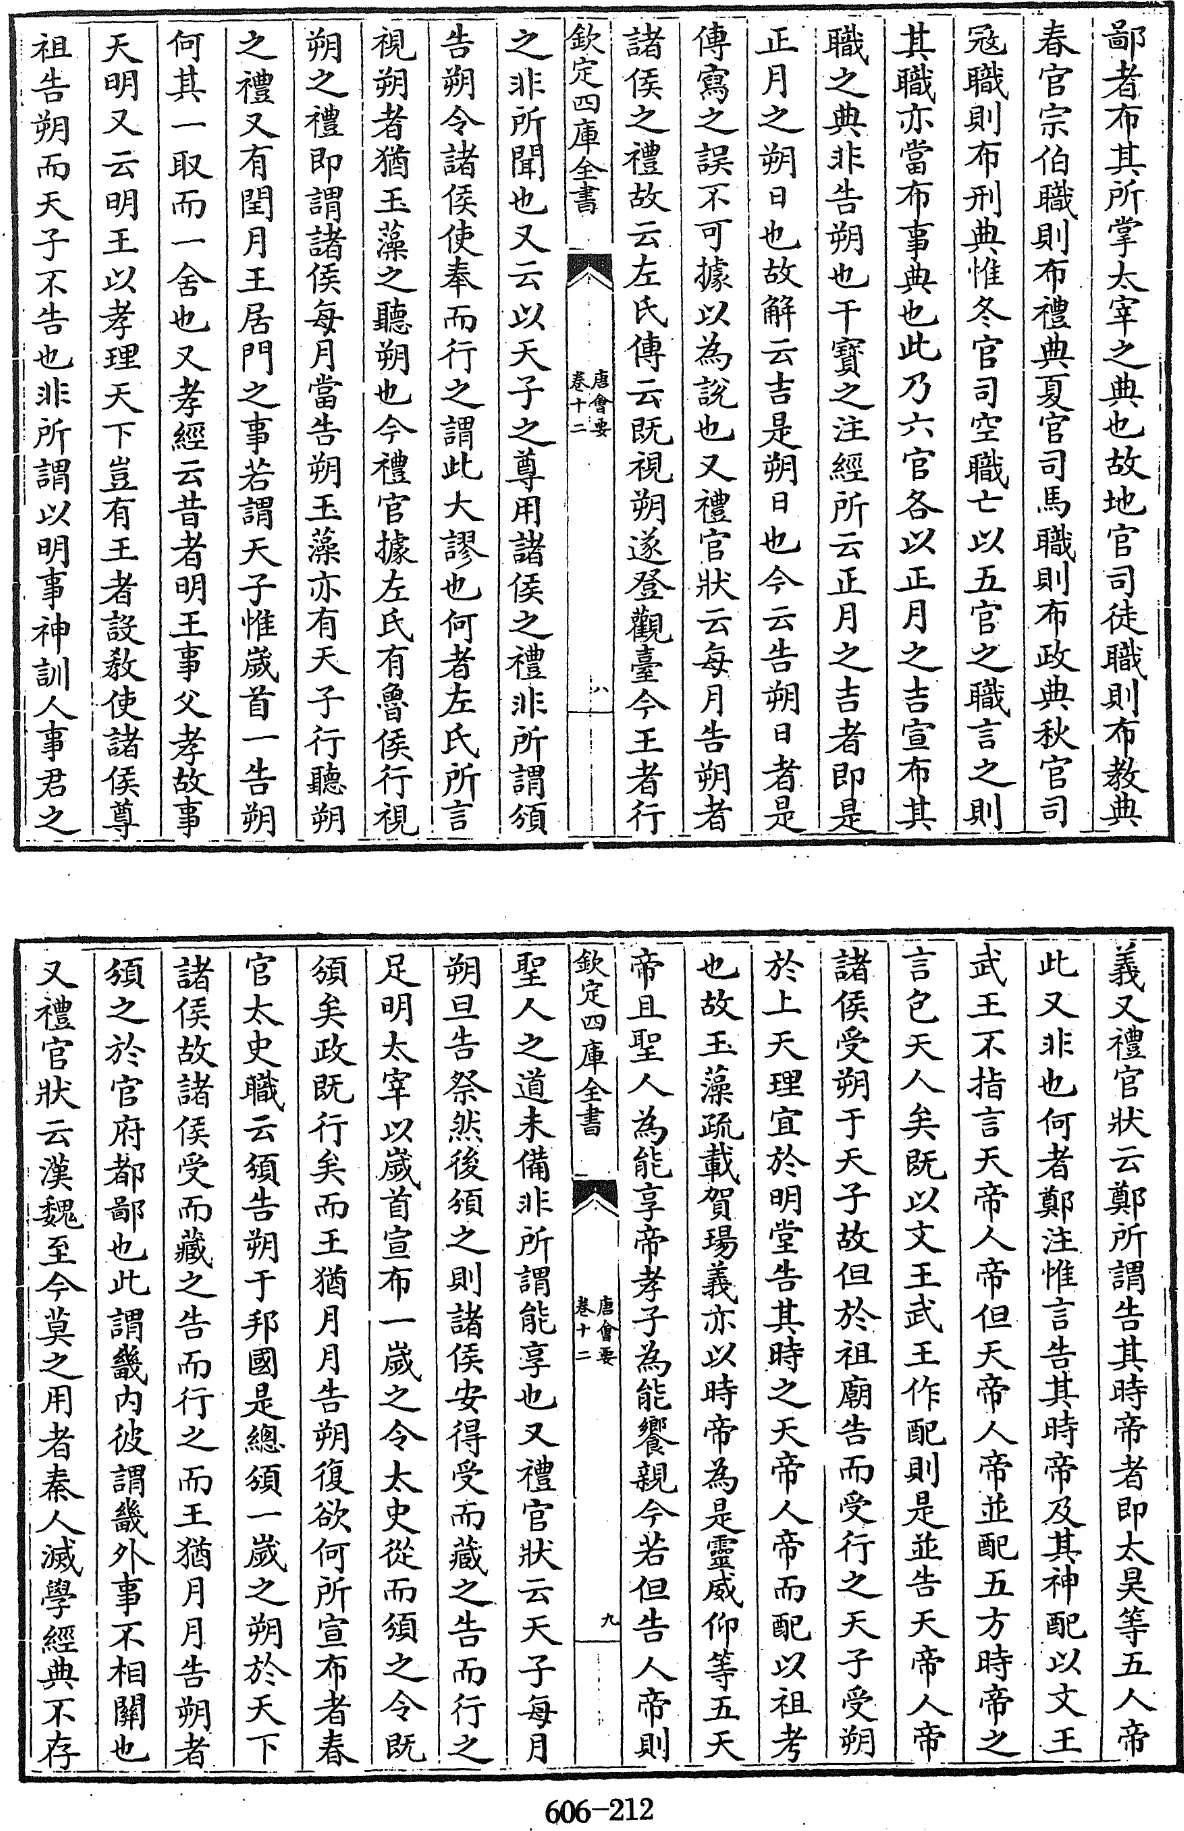 鄙者布其所掌太宰之典也故地官司徒職則布教典
春官宗伯職則布禮典夏官司馬職則布政典秋官司
冦職則布刑典惟冬官司空職亡以五官之職言之則
其職亦當布事典也此乃六官各以正月之吉宣布其
職之典非告朔也干寶之注經所云正月之吉者即是
正月之朔日也故解云吉是朔日也今云告朔日者是
傳寫之誤不可據以為說也又禮官狀云每月告朔者
諸侯之禮故云左氏傳云既視朔遂登觀臺今王者行
欽定四庫全書
唐會要
卷十二
八
之非所聞也又云以天子之尊用諸侯之禮非所謂頒
告朔令諸侯使奉而行之謂此大謬也何者左氏所言
視朔者猶玉藻之聽朔也今禮官據左氏有魯侯行視
朔之禮即謂諸侯每月當告朔玉藻亦有天子行聽朔
之禮又有閏月王居門之事若謂天子惟嵗首一告朔
何其一取而一舍也又孝經云昔者明王事父孝故事
天明又云明王以孝理天下豈有王者設教使諸侯尊
祖告朔而天子不告也非所謂以明事神訓人事君之
義又禮官狀云鄭所謂告其時帝者即太昊等五人帝
此又非也何者鄭注惟言告其時帝及其神配以文王
武王不指言天帝人帝但天帝人帝並配五方時帝之
言包天人矣既以文王武王作配則是並告天帝人帝
諸侯受朔于天子故但於祖廟告而受行之天子受朔
於上天理宜於明堂告其時之天帝人帝而配以祖考
也故玉藻疏載賀瑒義亦以時帝為是靈威仰等五天
帝且聖人為能享帝孝子為能饗親今若但告人帝則
欽定四庫全書
唐會要
卷十二
九
聖人之道未備非所謂能享也又禮官狀云天子每月
朔旦告祭然後頒之則諸侯安得受而藏之告而行之
足明太宰以嵗首宣布一嵗之令太史從而頒之令既
頒矣政既行矣而王猶月月告朔復欲何所宣布者春
官太史職云頒告朔于邦國是總頒一嵗之朔於天下
諸侯故諸侯受而藏之告而行之而王猶月月告朔者
頒之於官府都鄙也此謂畿内彼謂畿外事不相關也
又禮官狀云漢魏至今莫之用者秦人滅學經典不存
606-212